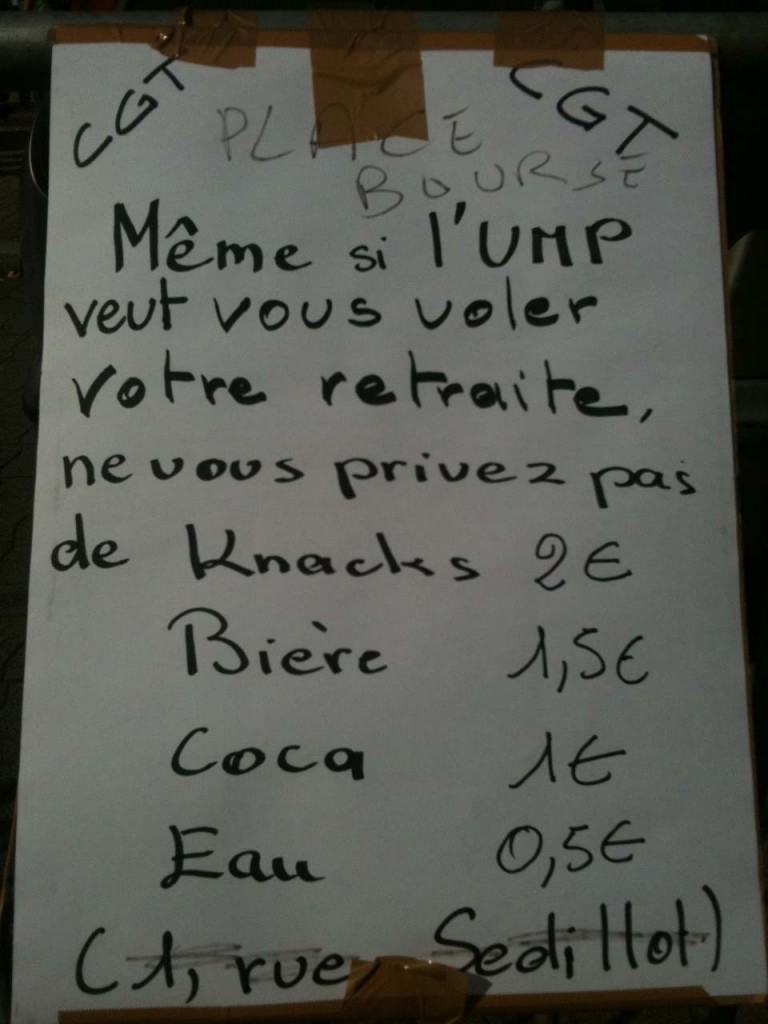 CGT CGT
PLACE
BOURSE
Même si l'UMP
veut vous voler
votre retraite,
ne vous privez pas
de Knacks 2€
Bière 1,5€
Coca 1€
Eau 0,5€
(1, rue, Sedillot)